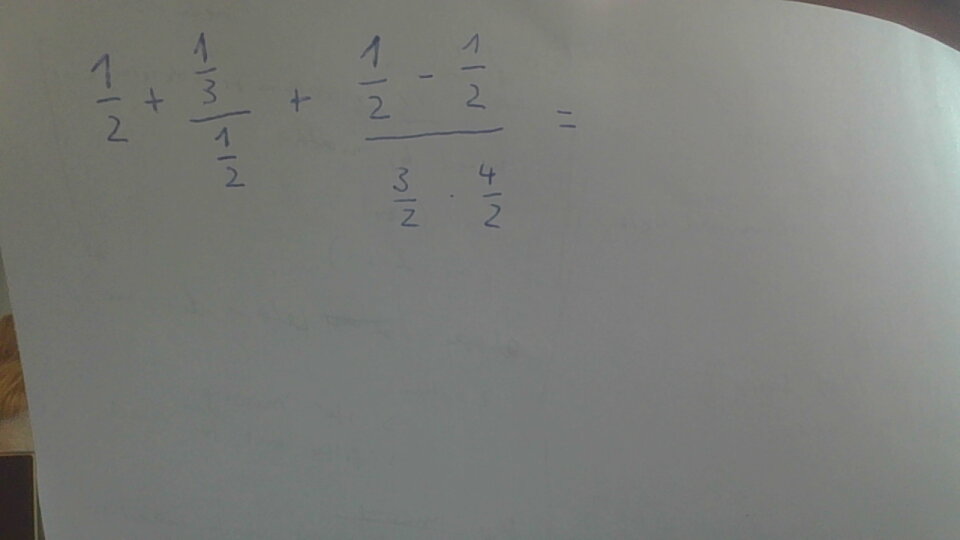 1/2 + (1/3)/(1/2) + (1/2 - 1/2)/(3/2 · 4/2) =